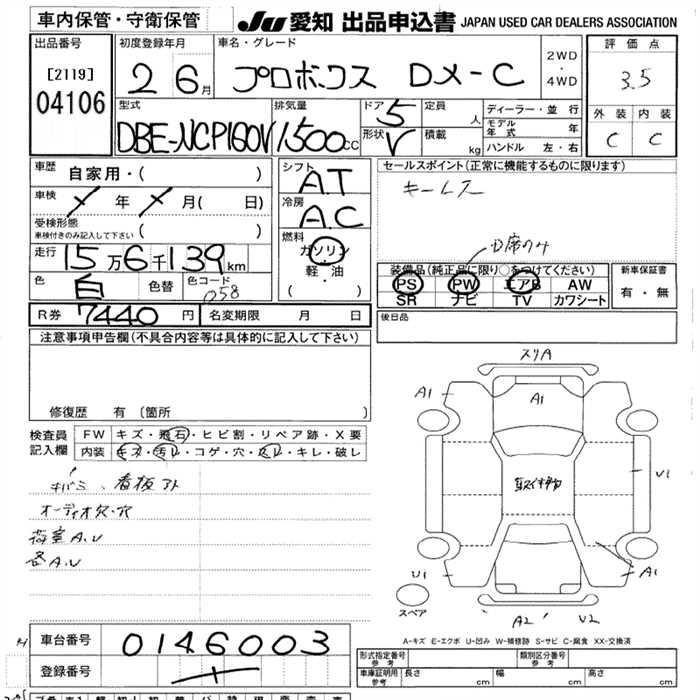 車内保管・守衛保管
JU 愛知 出品申込書 JAPAN USED CAR DEALERS ASSOCIATION
出品番号
[2119]
04106
初度登録年月
2 6月
車名・グレード
プロボックス DX-C
2WD
・
4WD
評価点
3.5
外装 内装
C C
型式
DBE-NCP160V
排気量
1500cc
ドア 5
形状 V
定員 人
積載 kg
ディーラー・並行
モデル年式 年
ハンドル 左・右
車歴
自家用・( )
車検
年 月( 日)
受検形態
車検付きのみ記入して下さい
( )
走行
15万6千139km
色
白
色替
色コード
058
R券 7440円
名変期限 月 日
シフト
AT
冷房
A.C
燃料
ガソリン
軽・油
( )
セールスポイント(正常に機能するものに限ります)
キーレス
装備品(純正品に限り○をつけてください)
PS PW エアB AW
SR ナビ TV カワシート
新車保証書
有・無
後日品
注意事項申告欄(不具合内容等は具体的に記入して下さい)
修復歴 有 (箇所 )
検査員
記入欄
FW キズ・飛石・ヒビ割・リペア跡・X要
内装 キズ・汚レ・コゲ・穴・スレ・キレ・破レ
キバミ、看板アト
オーディオ欠・穴
荷室A.U
各A.U
スリA
A1
A1
取外物
U1
U1
A1
スペア
A2 U2
A-キズ E-エクボ U-凹み W-補修跡 S-サビ C-腐食 XX-交換済
車台番号
0146003
登録番号
形式指定番号
参考
類別区分番号
参考
車庫証明用
参考
長さ cm
幅 cm
高さ cm